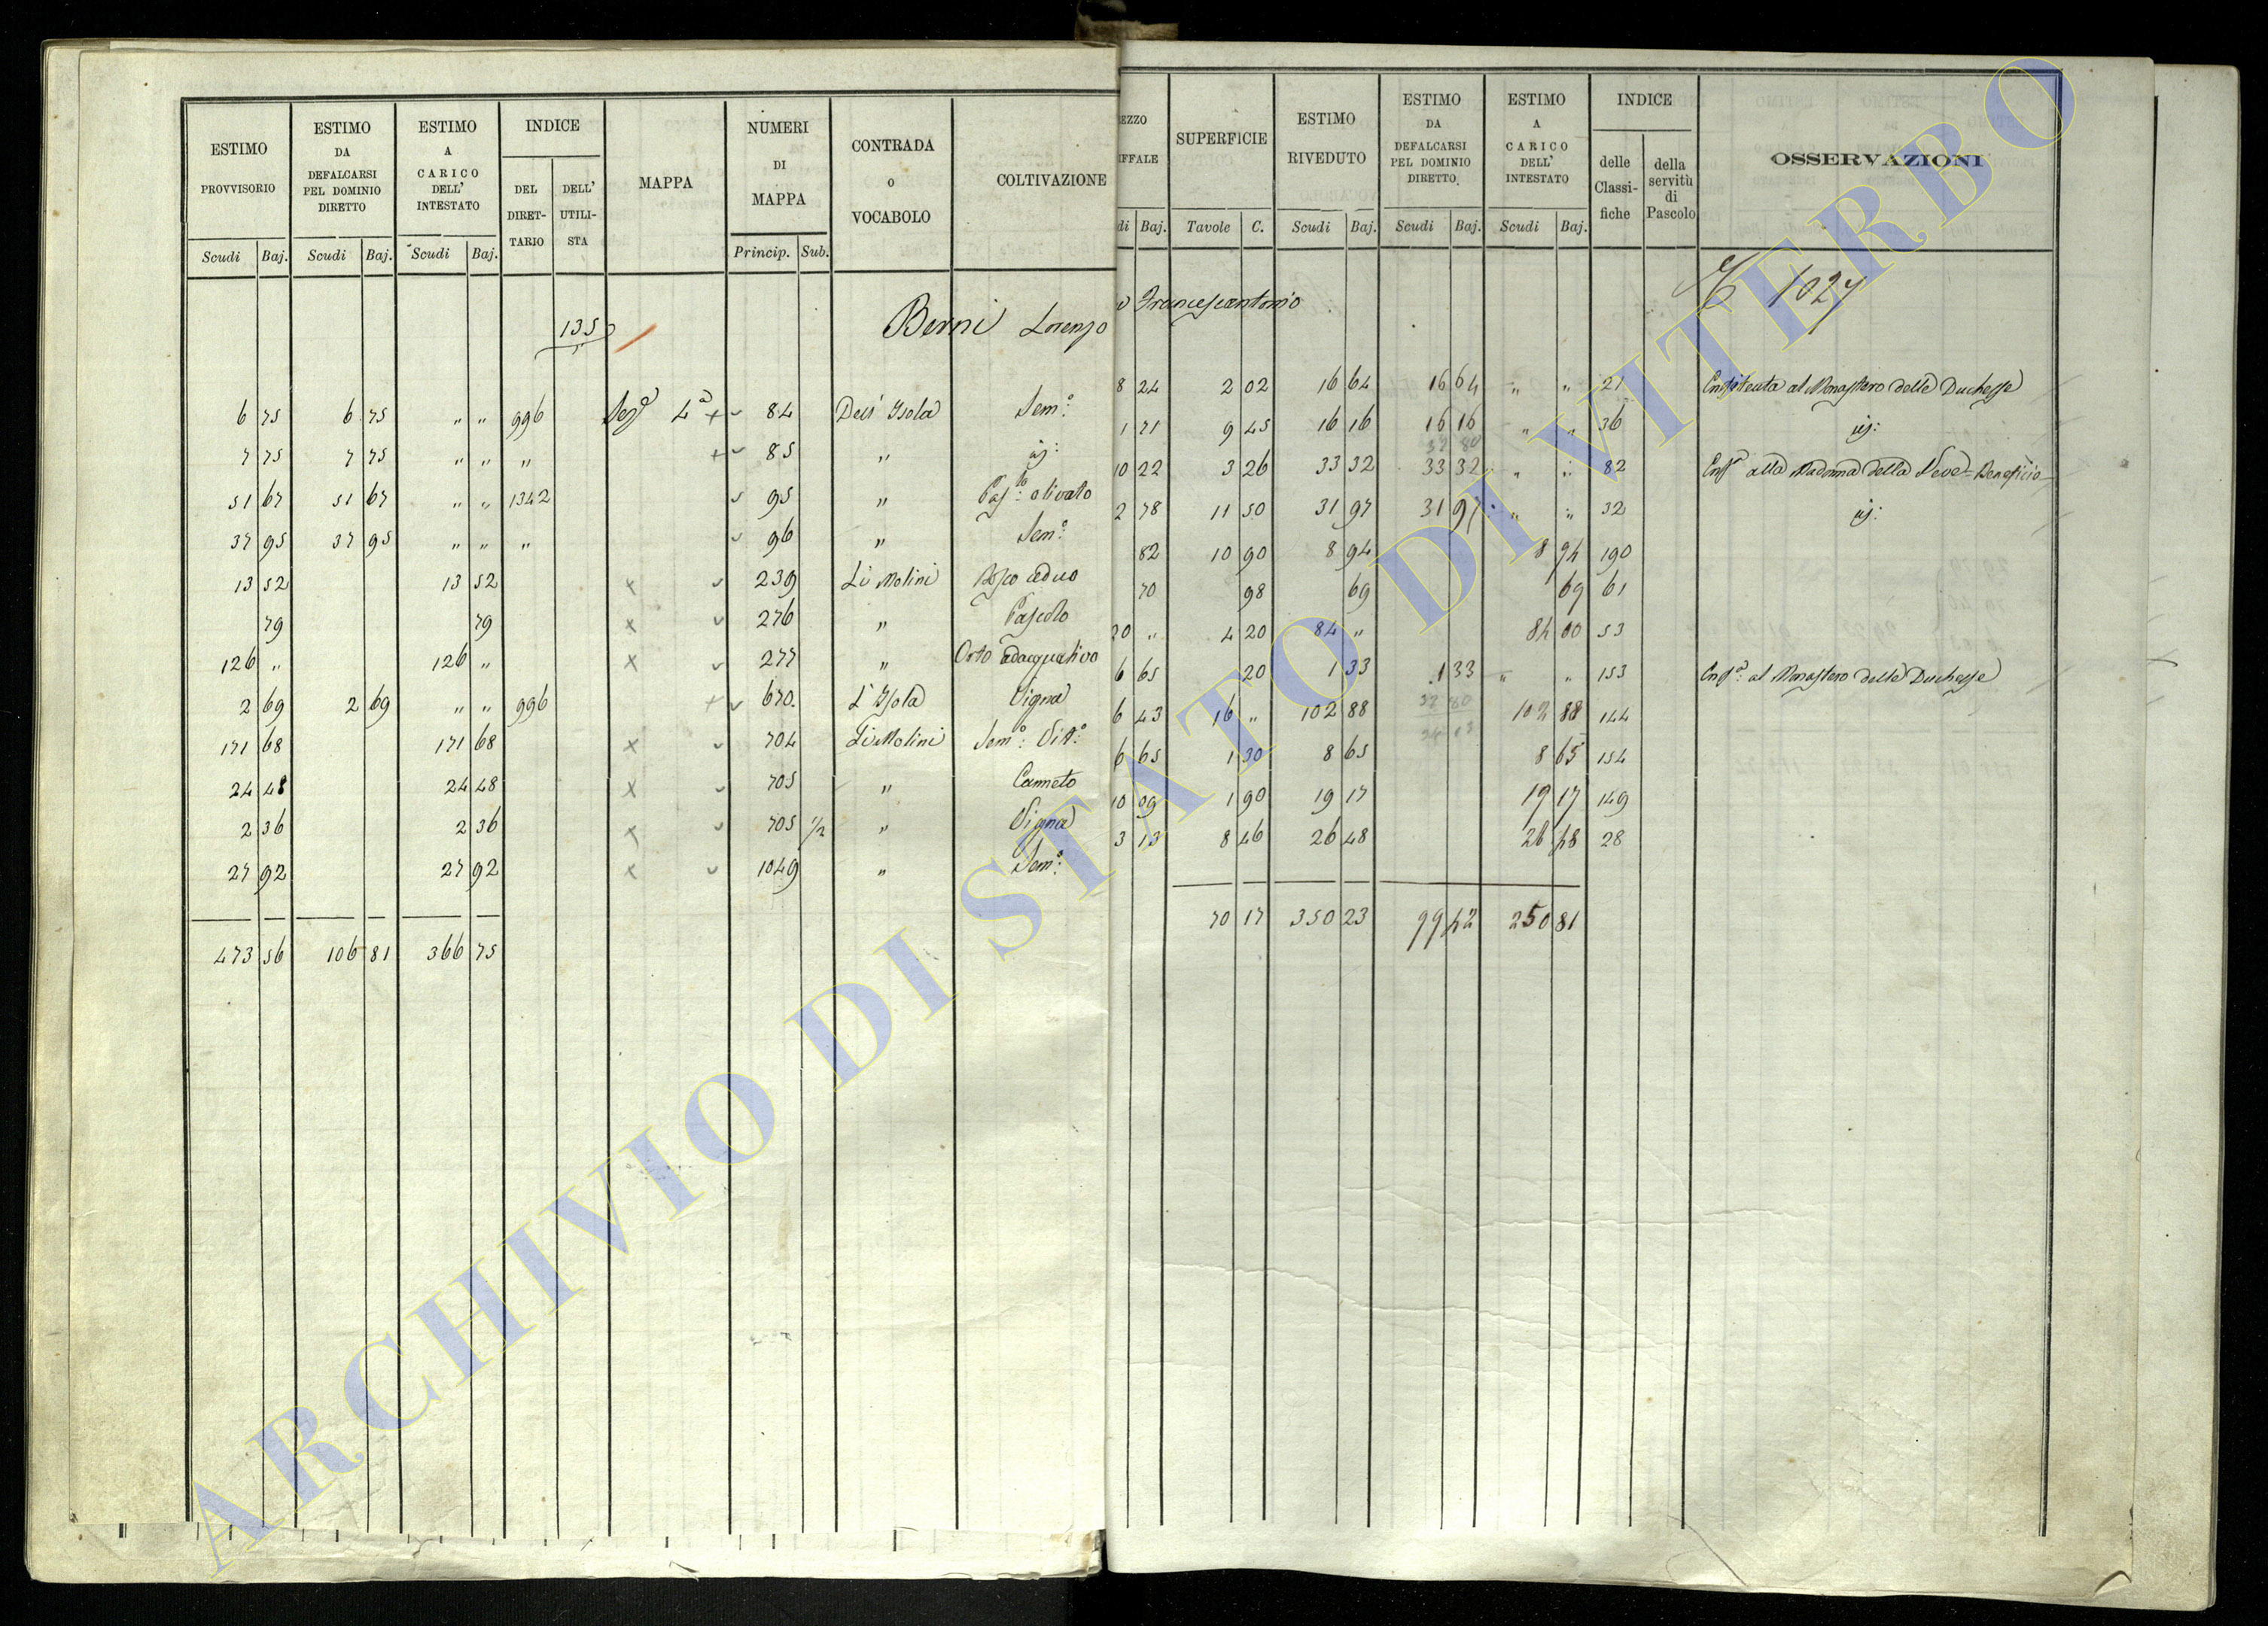 ESTIMO PROVVISORIO Scudi Baj.
ESTIMO DA DEFALCARSI PEL DOMINIO DIRETTO Scudi Baj.
ESTIMO A CARICO DELL' INTESTATO Scudi Baj.
INDICE DEL DIRETTARIO DELL' UTILISTA
MAPPA
NUMERI DI MAPPA Princip. Sub.
CONTRADA o VOCABOLO
COLTIVAZIONE
EZZO IFFALE di Baj.
SUPERFICIE Tavole C.
ESTIMO RIVEDUTO Scudi Baj.
ESTIMO DA DEFALCARSI PEL DOMINIO DIRETTO. Scudi Baj.
ESTIMO A CARICO DELL' INTESTATO Scudi Baj.
INDICE delle Classifiche della servitù di Pascolo
OSSERVAZIONI
1027
135 Berni Lorenzo Francescantonio
6 75 6 75 " " 996 Sez.e 4a + 84 Dell' Isola Sem.o 8 24 2 02 16 64 16 64 " " 21 Enfiteuta al Monastero delle Duchesse
7 75 7 75 " " " + 85 " id: 1 71 9 45 16 16 16 16 " " 36 id:
51 67 51 67 " " 1342 95 " Pas.to olivato 10 22 3 26 33 32 33 32 " " 82 Enf.a alla Madonna della Neve - Beneficio
37 95 37 95 " " " 96 " Sem.o 2 78 11 50 31 97 31 97 " " 32 id:
13 52 13 52 x 239 Li Molini Bosco ceduo 82 10 90 8 94 8 94 190
79 79 x 276 " Pascolo 70 98 69 69 61
126 " 126 " x 277 " Orto adacquativo 20 " 4 20 84 " 84 00 53
2 69 2 69 " " 996 + 670. L' Isola Vigna 6 65 20 1 33 1 33 " " 153 Enf.a al Monastero delle Duchesse
171 68 171 68 x 704 Li Molini Sem.o Vit.o 6 43 16 " 102 88 102 88 144
24 48 24 48 x 705 " Canneto 6 65 1 30 8 65 8 65 154
2 36 2 36 x 705 1/2 " Vigna 10 09 1 90 19 17 19 17 149
27 92 27 92 x 1049 " Sem.o 3 13 8 46 26 48 26 48 28
473 56 106 81 366 75 70 17 350 23 99 42 250 81
ARCHIVIO DI STATO DI VITERBO